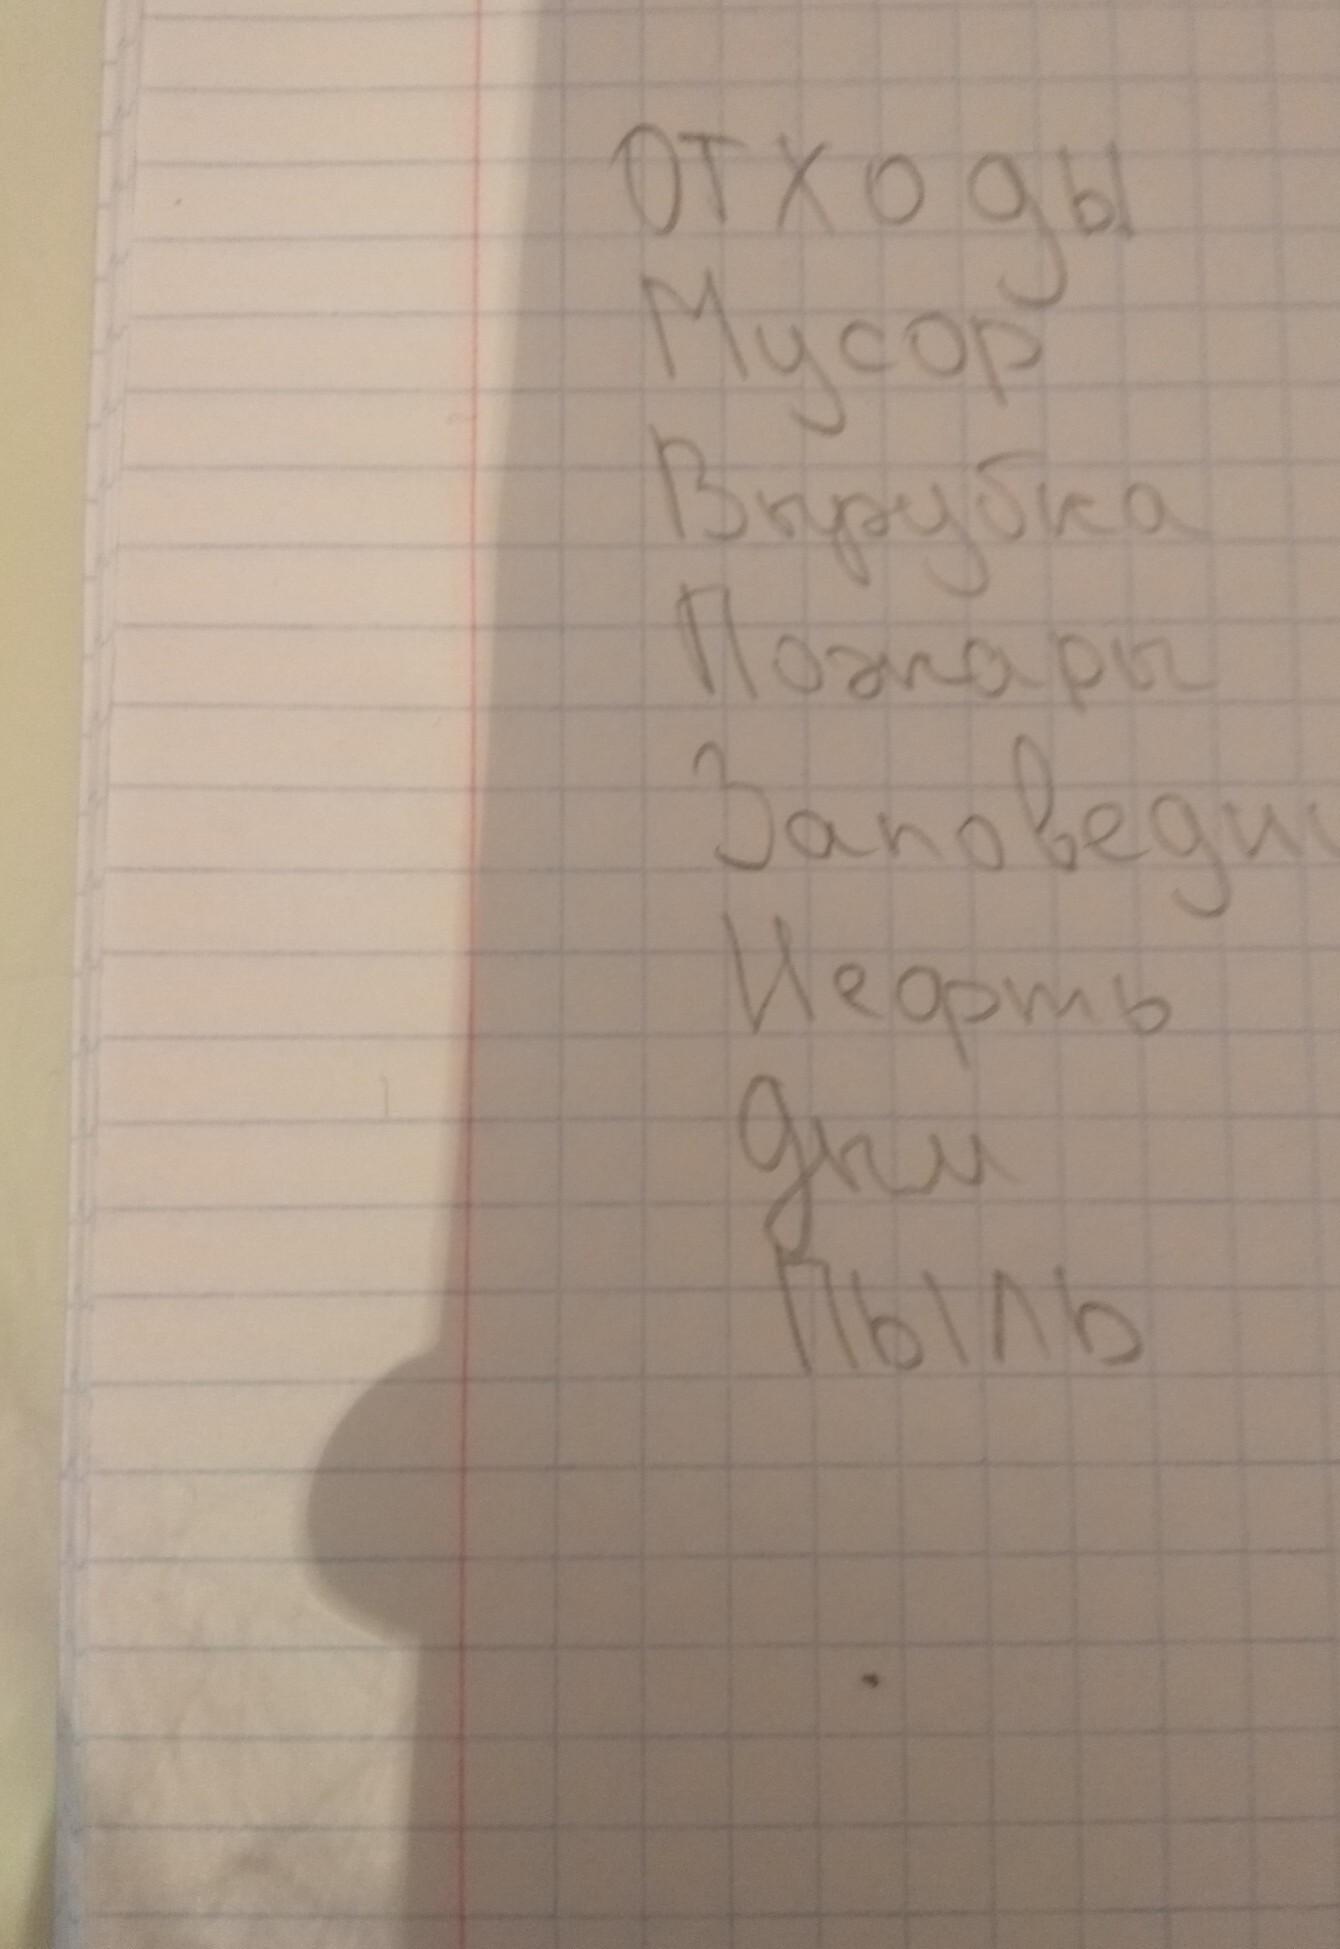 отходы
Мусор
Вырубка
Пожары
Заповедни
Нефть
дым
Пыль